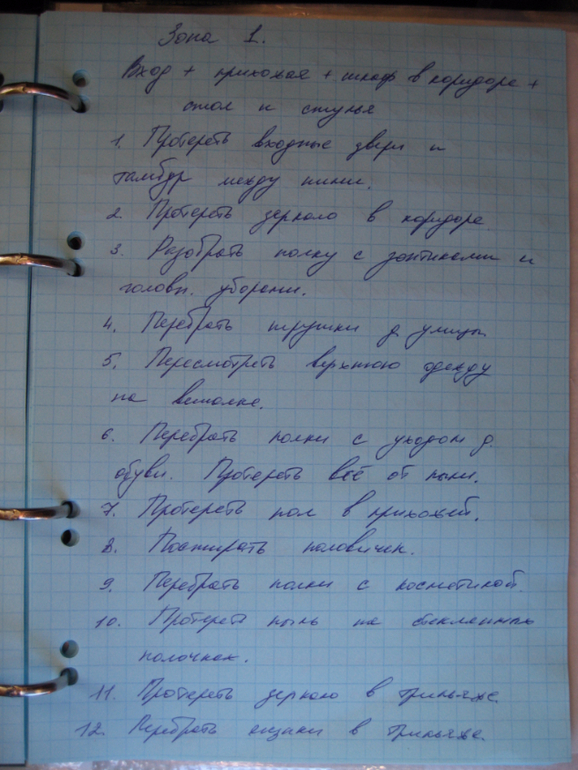 Зона 1.
Вход + прихожая + шкаф в коридоре +
стол и стулья
1. Протереть входные двери и
тамбур между ними.
2. Протереть зеркало в коридоре
3. Разобрать полку с зонтиками и
головн. уборами.
4. Перебрать игрушки д. улицы
5. Пересмотреть верхнюю одежду
на вешалке.
6. Перебрать полки с уходом д.
обуви. Протереть всё от пыли.
7. Протереть пол в прихожей.
8. Постирать половичек.
9. Перебрать полки с косметикой.
10. Протереть пыль на стеклянных
полочках.
11. Протереть зеркало в трильяже.
12. Перебрать ящики в трильяже.